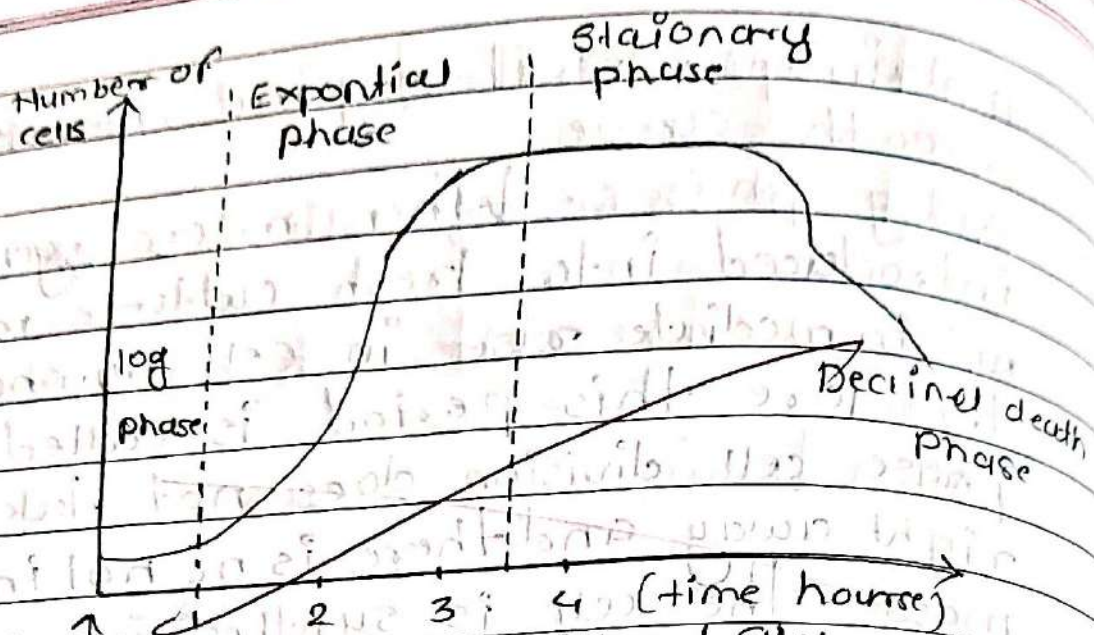 Number of
cells
Expontial
phase
Staionary
phase
log
phase
Declined death
phase
1 2 3 4 (time hourse)